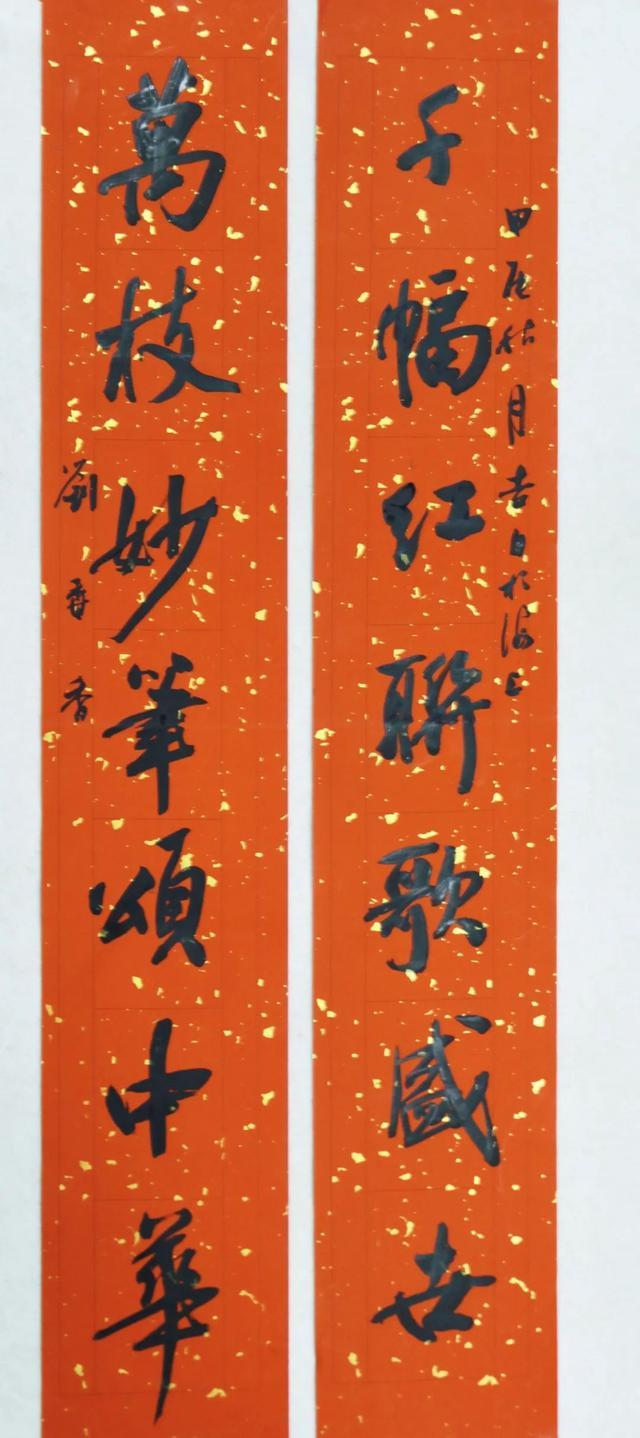 甲辰桂月吉日於海上
千幅红聯歌盛世
萬枝妙筆頌中華
劉香